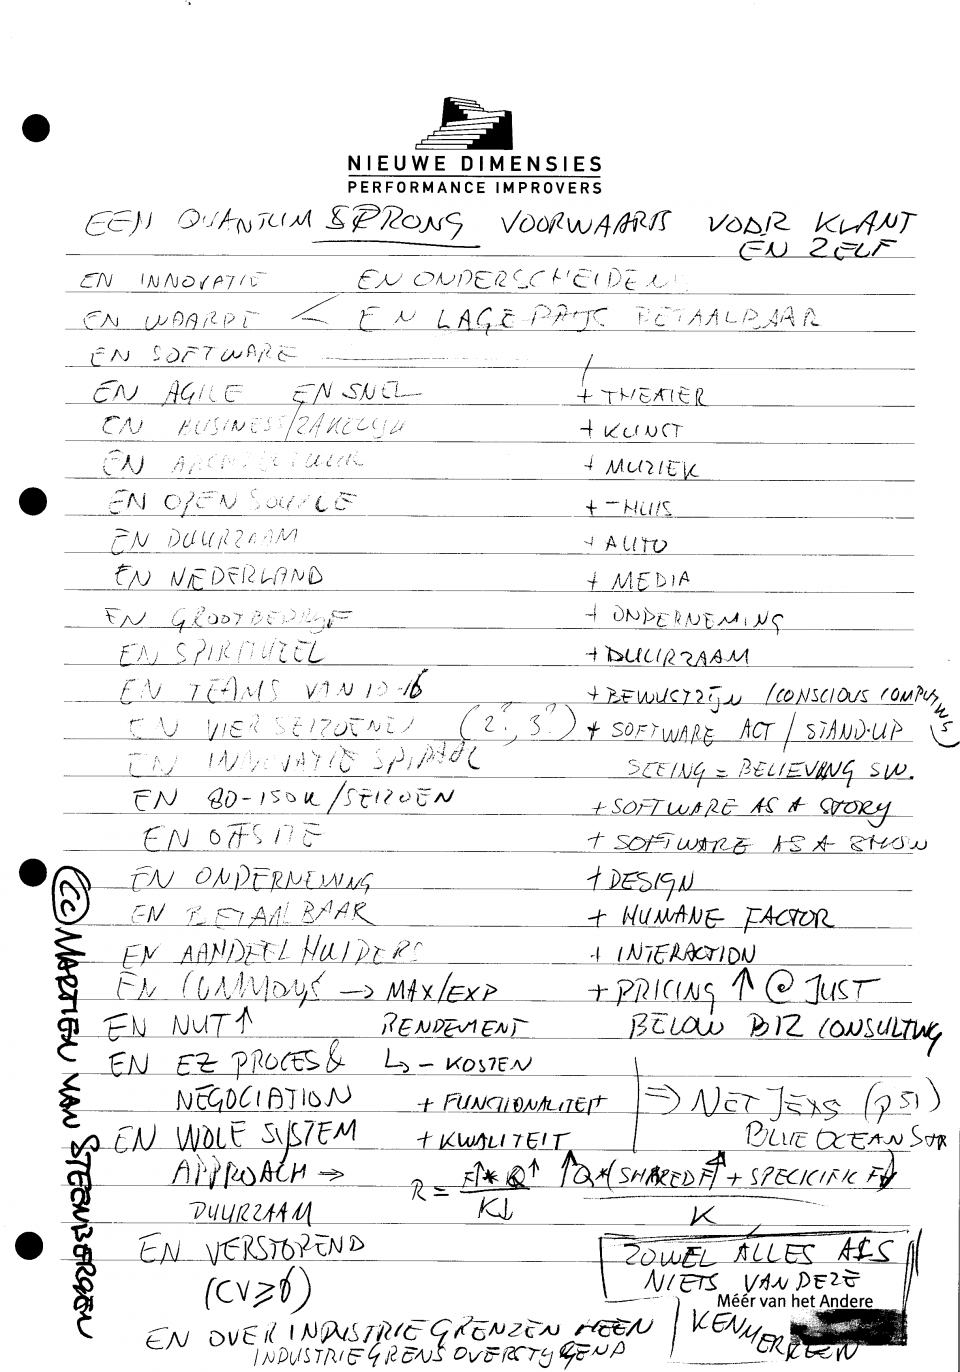 NIEUWE DIMENSIES
PERFORMANCE IMPROVERS
EEN QUANTUM SPRONG VOORWAARTS VOOR KLANT
EN ZELF
EN INNOVATIE EN ONDERSCHEIDEND
EN WAARDE < EN LAGE PRIJS BETAALBAAR
EN SOFTWARE
EN AGILE EN SNEL + THEATER
EN BUSINESS/ZAKELIJK + KUNST
EN ARCHITECTUUR + MUZIEK
EN OPEN SOURCE + -HUIS
EN DUURZAAM + AUTO
EN NEDERLAND + MEDIA
EN GROOTBEDRIJF + ONDERNEMING
EN SPIRITUEEL + DUURZAAM
EN TEAMS VAN 10-16 + BEWUSTZIJN (CONSCIOUS COMPUTING)
EN VIER SEIZOENEN (2?, 3?) + SOFTWARE ACT / STAND-UP
EN INNOVATIE SPIRAAL SEEING = BELIEVING SW.
EN 80-150K/SEIZOEN + SOFTWARE AS A STORY
EN OFFSITE + SOFTWARE AS A SHOW
EN ONDERNEMING + DESIGN
EN BETAALBAAR + HUMANE FACTOR
EN AANDEELHOUDERS + INTERACTION
EN COMMONS → MAX/EXP + PRICING ↑ @ JUST
EN NUT↑ RENDEMENT BELOW BIZ CONSULTING
EN EZ PROCES & ↳ - KOSTEN
NEGOCIATION + FUNCTIONALITEIT ⇒ NET JETS (p 51)
EN WOLE SYSTEM + KWALITEIT BLUE OCEAN STR
APPROACH → R = F↑ * Q↑ / K↓ ↑Q * (SHARED F↑ + SPECIFIEK F↓) / K
DUURZAAM
EN VERSTOREND
(CV≥6)
ZOWEL ALLES ALS
NIETS VAN DEZE
Méér van het Andere
KENMERKEN
EN OVER INDUSTRIE GRENZEN HEEN
INDUSTRIEGRENS OVERSTYGEND
(cc) MARTIEN VAN STEENBERGEN